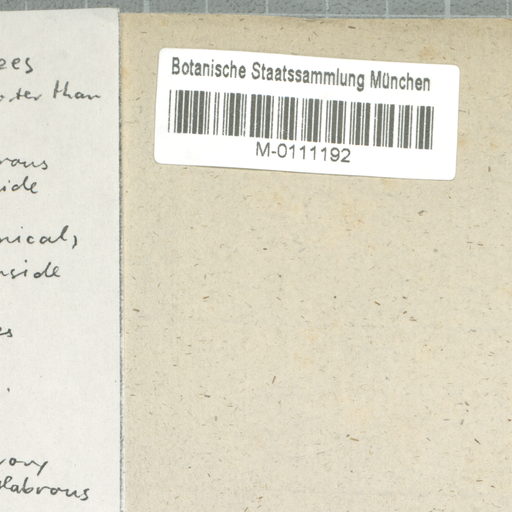 ees
than
rous
ide
nical,
nside
es
glabrous
Botanische Staatssammlung München
M-0111192